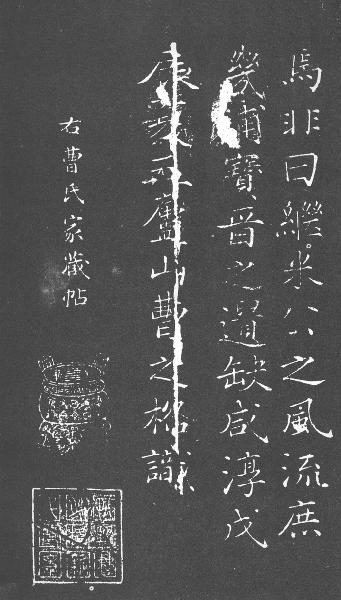 焉非曰繼米公之風流庶
幾補寶晉之遺缺咸淳戊
辰廬山曹之格識
右曹氏家藏帖